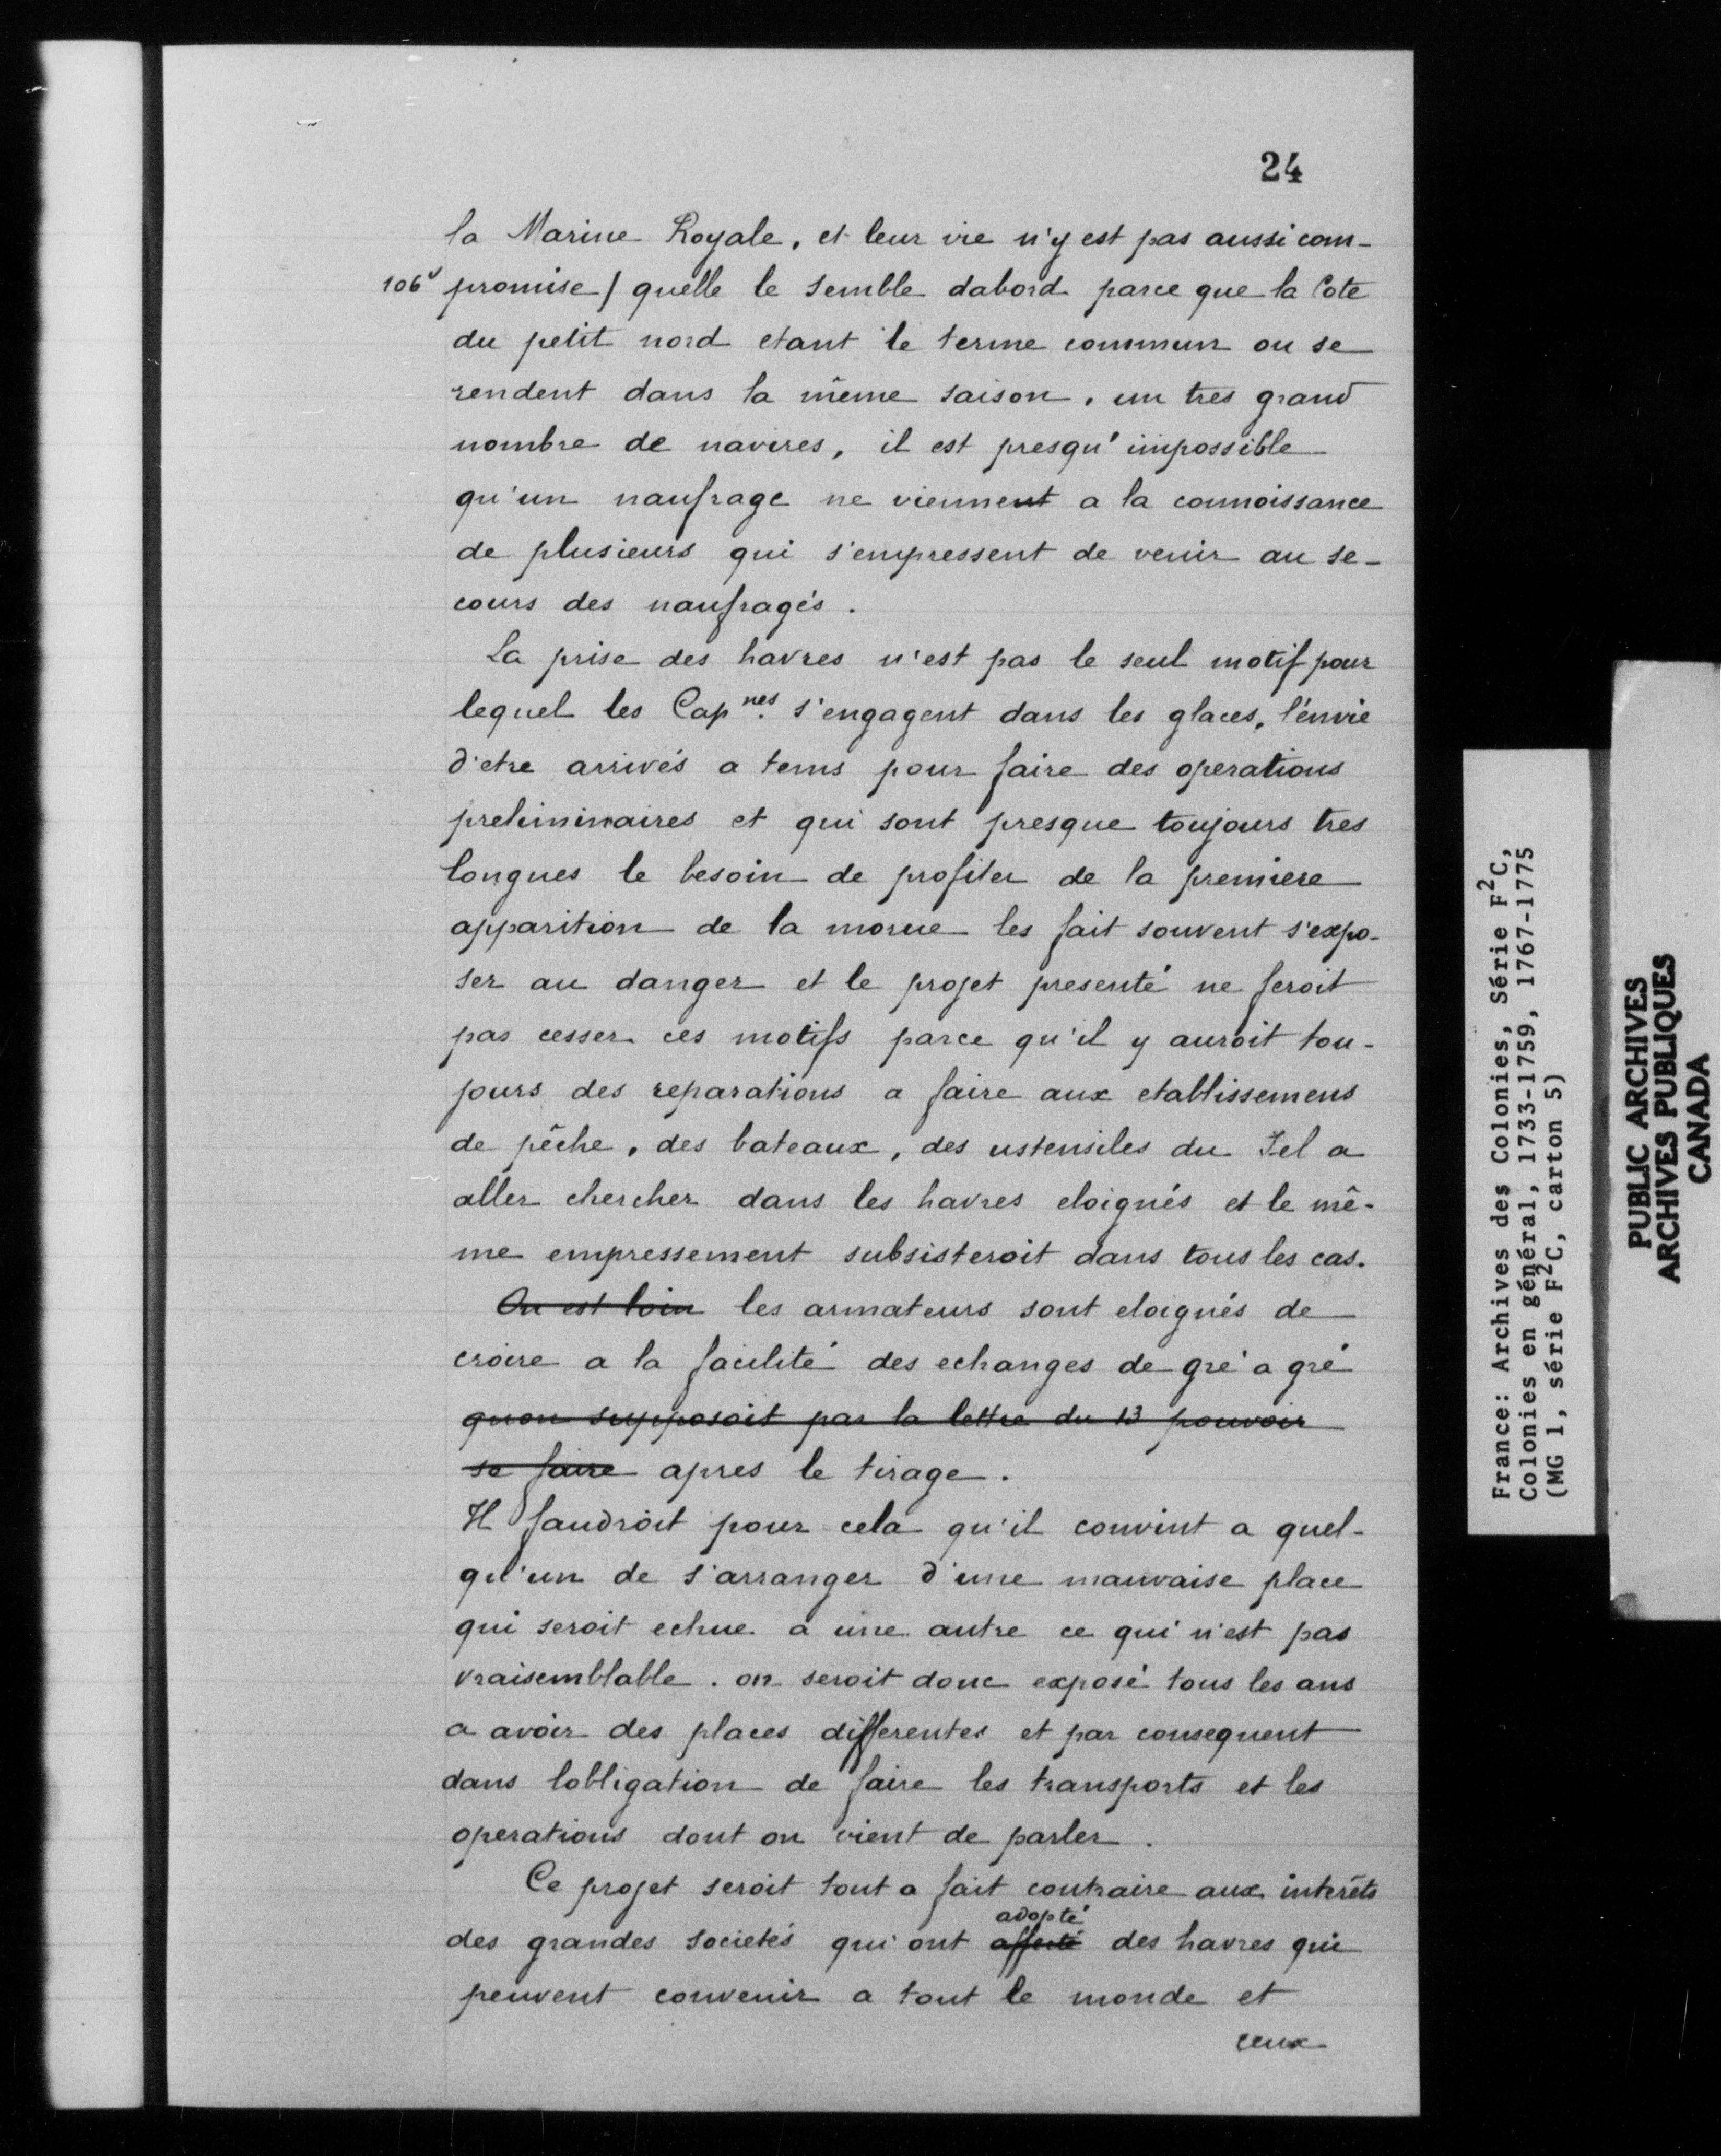 24
la Marine Royale, et leur vie n'y est pas aussi com-
106v promise / quelle le semble dabord parce que la Cote
du petit nord etant le terme commun ou se
rendent dans la même saison, un tres grand
nombre de navires, il est presqu'impossible
qu'un naufrage ne viennent a la connoissance
de plusieurs qui s'empressent de venir au se-
cours des naufragés.
La prise des havres n'est pas le seul motif pour
lequel les Capnes. s'engagent dans les glaces, l'envie
d'etre arrivés a tems pour faire des operations
preliminaires et qui sont presque toujours tres
longues le besoin de profiter de la premiere
apparition de la morue les fait souvent s'expo-
ser au danger et le projet presenté ne feroit
pas cesser ces motifs parce qu'il y auroit tou-
jours des reparations a faire aux etablissemens
de pêche, des bateaux, des ustensiles du Sel a
aller chercher dans les havres eloignés et le mê-
me empressement subsisteroit dans tous les cas.
On est loin les armateurs sont eloignés de
croire a la facilité des echanges de gré a gré
quon supposoit par la lettre du 13 pouvoir
se faire apres le tirage.
Il faudroit pour cela qu'il convint a quel-
qu'un de s'arranger d'une mauvaise place
qui seroit echue a une autre ce qui n'est pas
vraisemblable. on seroit donc exposé tous les ans
a avoir des places differentes et par consequent
dans lobligation de faire les transports et les
operations dont on vient de parler.
Ce projet seroit tout a fait contraire aux interêts
adopté
des grandes societés qui ont affecté des havres qui
peuvent convenir a tout le monde et
ceux
France: Archives des Colonies, Série F2C,
Colonies en général, 1733-1759, 1767-1775
(MG 1, série F2C, carton 5)
PUBLIC ARCHIVES
ARCHIVES PUBLIQUES
CANADA